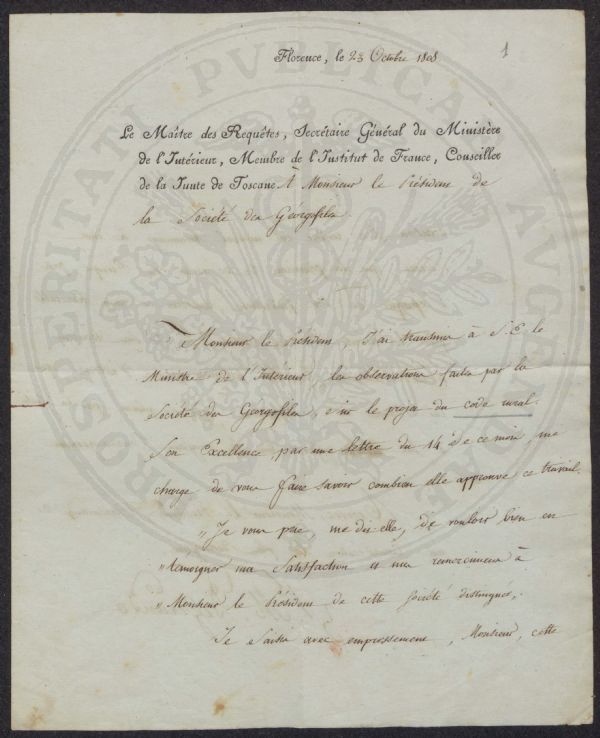 1
Florence, le 23 Octobre 1808
Le Maître des Requêtes, Secrétaire Général du Ministère
de l'Intérieur, Membre de l'Institut de France, Conseiller
de la Junte de Toscane. À Monsieur le Président de
la Société des Géorgofiles.
Monsieur le Président, J'ai transmis à S. E. le
Ministre de l'Intérieur les observations faites par la
Société des Géorgofiles, sur le projet du code rural.
Son Excellence, par une lettre du 14 de ce mois, me
charge de vous faire savoir combien elle approuve ce travail.
"Je vous prie, me dit-elle, de vouloir bien en
"témoigner ma satisfaction et mes remercimens à
"Monsieur le Président de cette Société distinguée,.
Je saisis avec empressement, Monsieur, cette
PROSPERITATI PVBLICAE AVGENDAE